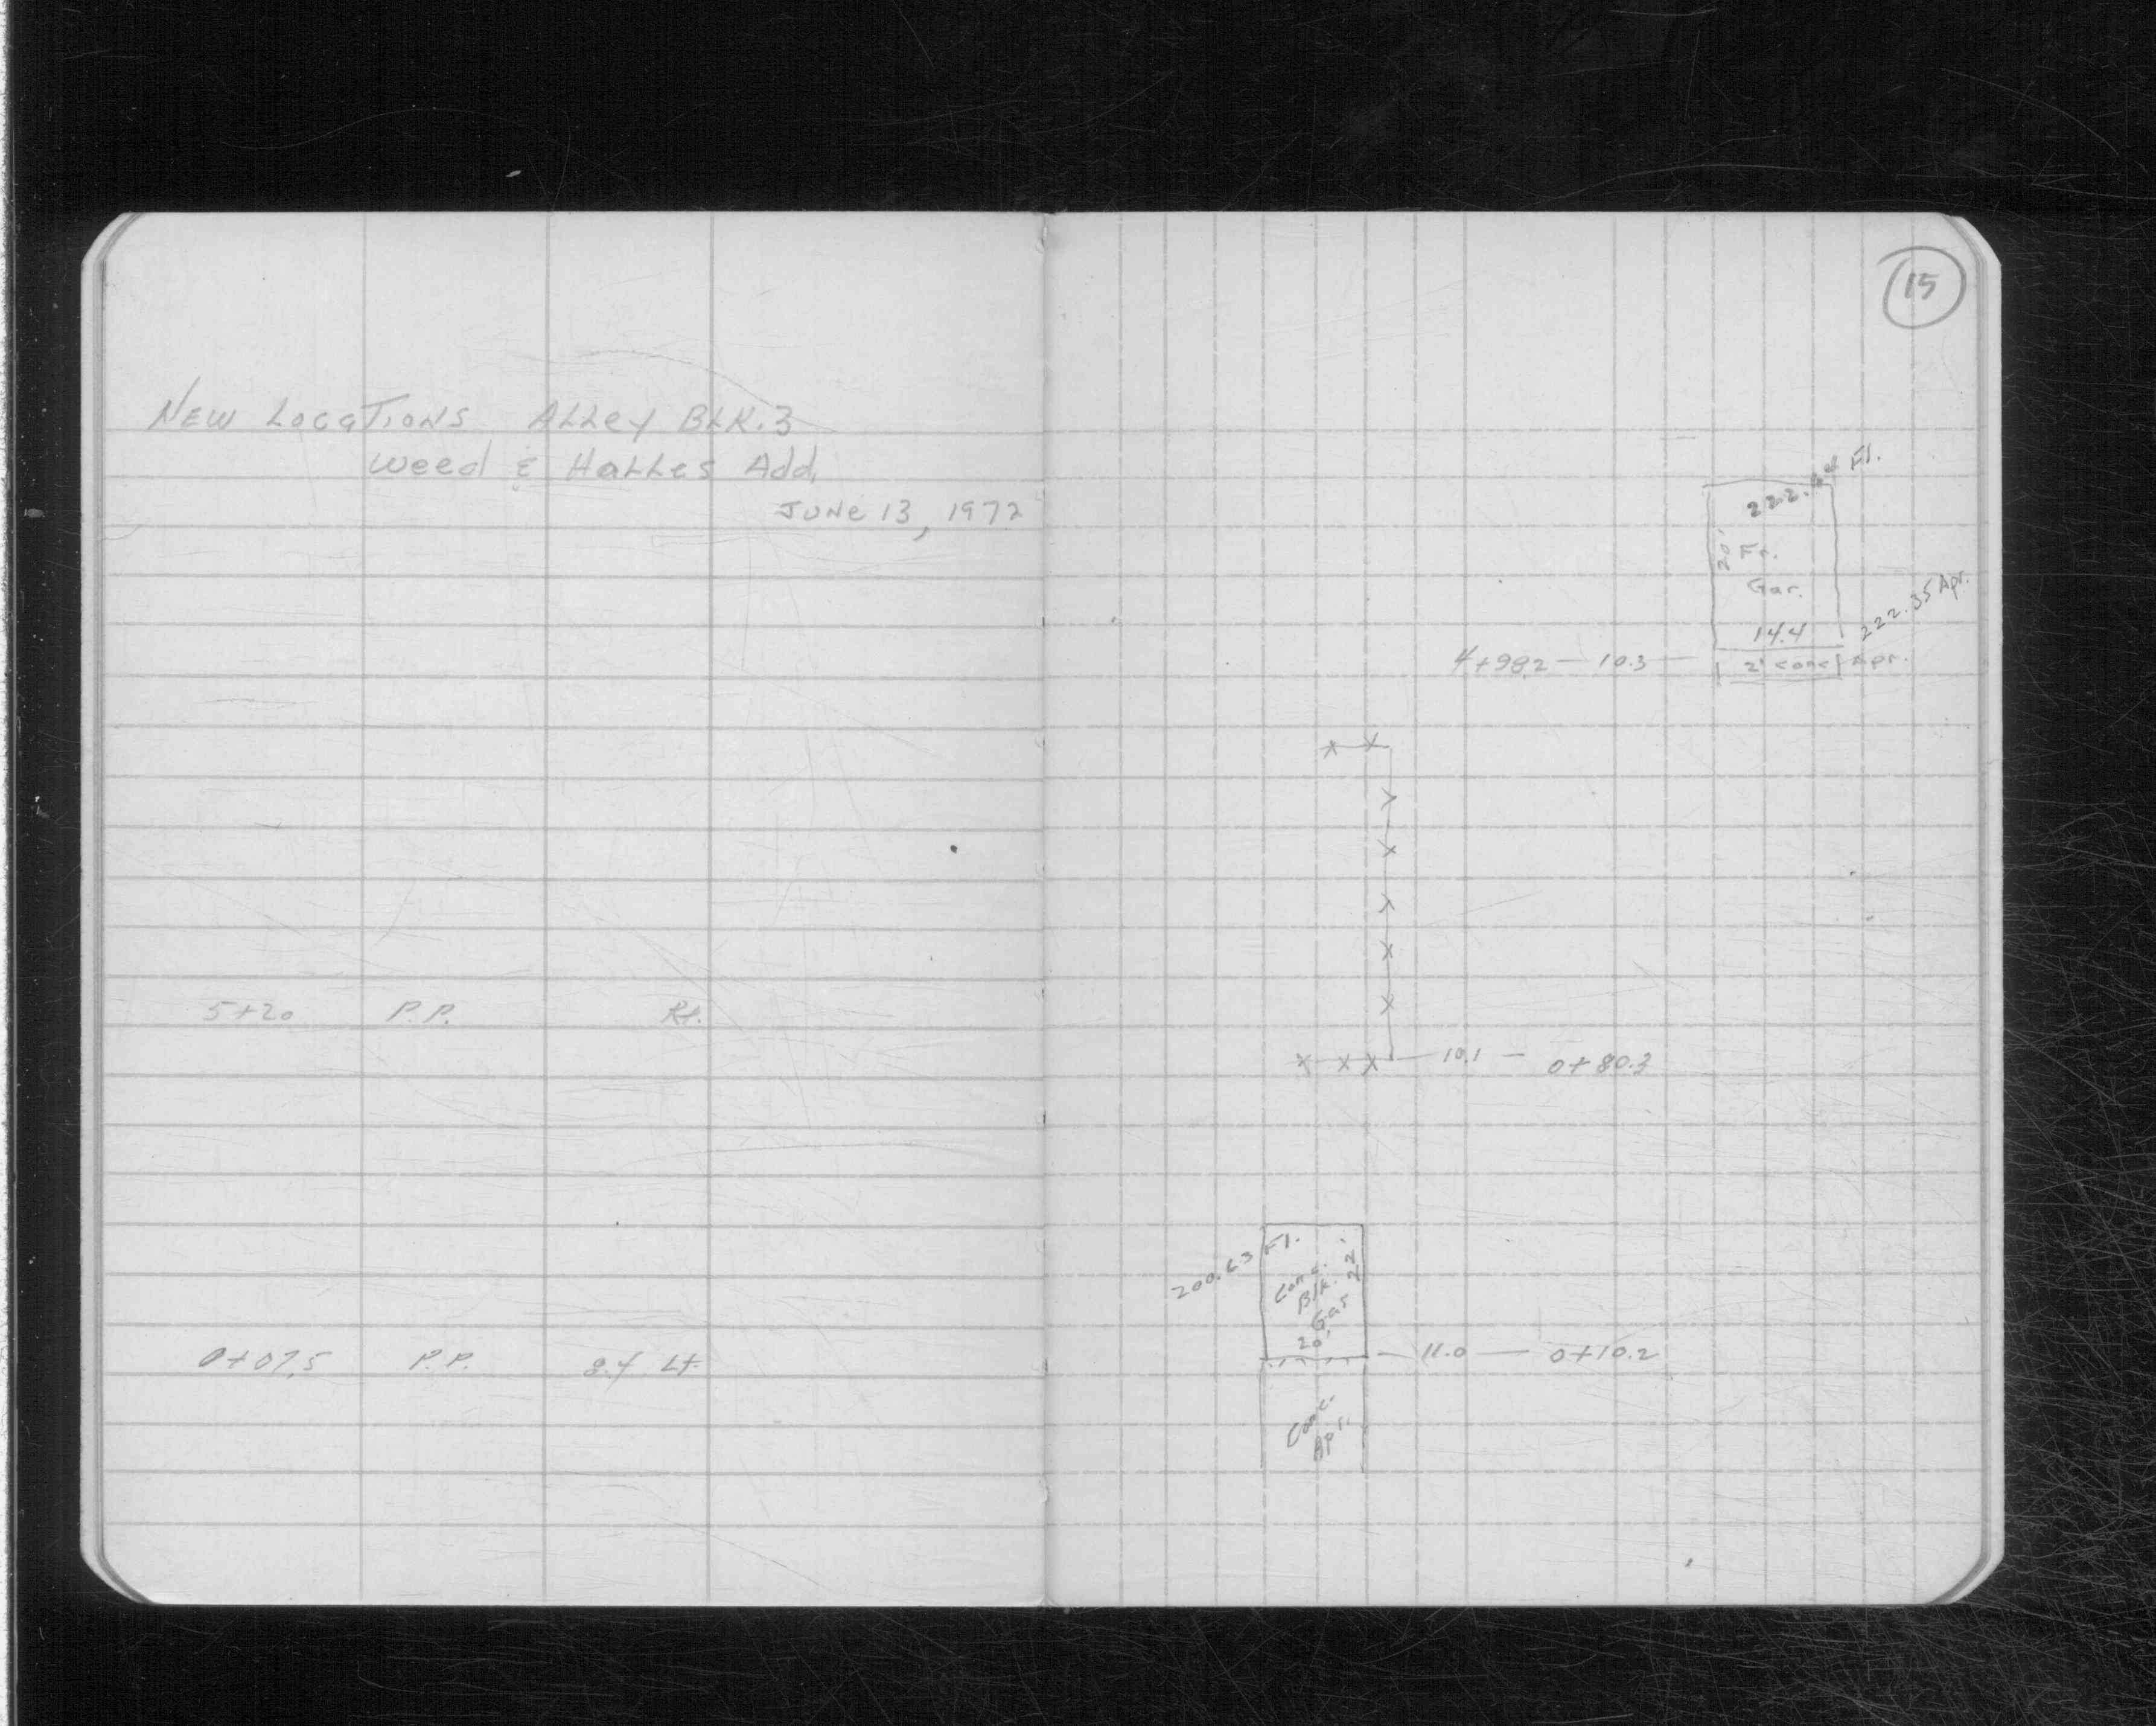 NEW LOCATIONS ALLEY BLK.3
Weed & HALLES Add.
JUNE 13, 1972
5+20 P.P. Rt.
0+07.5 P.P. 8.4 Lt.
15
Fl.
20' Fr.
Gar.
14.4
222.35 Apr.
4+98.2 — 10.3 — 2' conc Apr.
10.1 — 0+80.3
200.63 Fl.
Conc.
Blk.
Gar
22'
20'
11.0 — 0+10.2
Conc.
Apr.